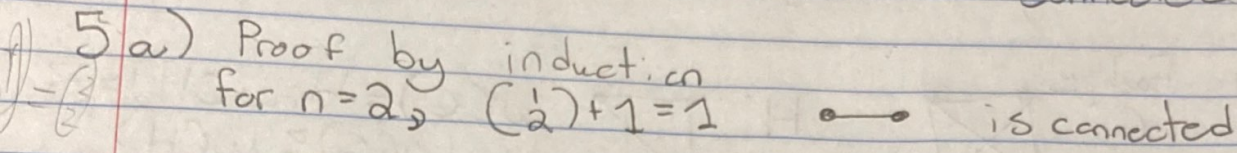 5a) Proof by induction
for n=2, (1 2)+1=1 is connected